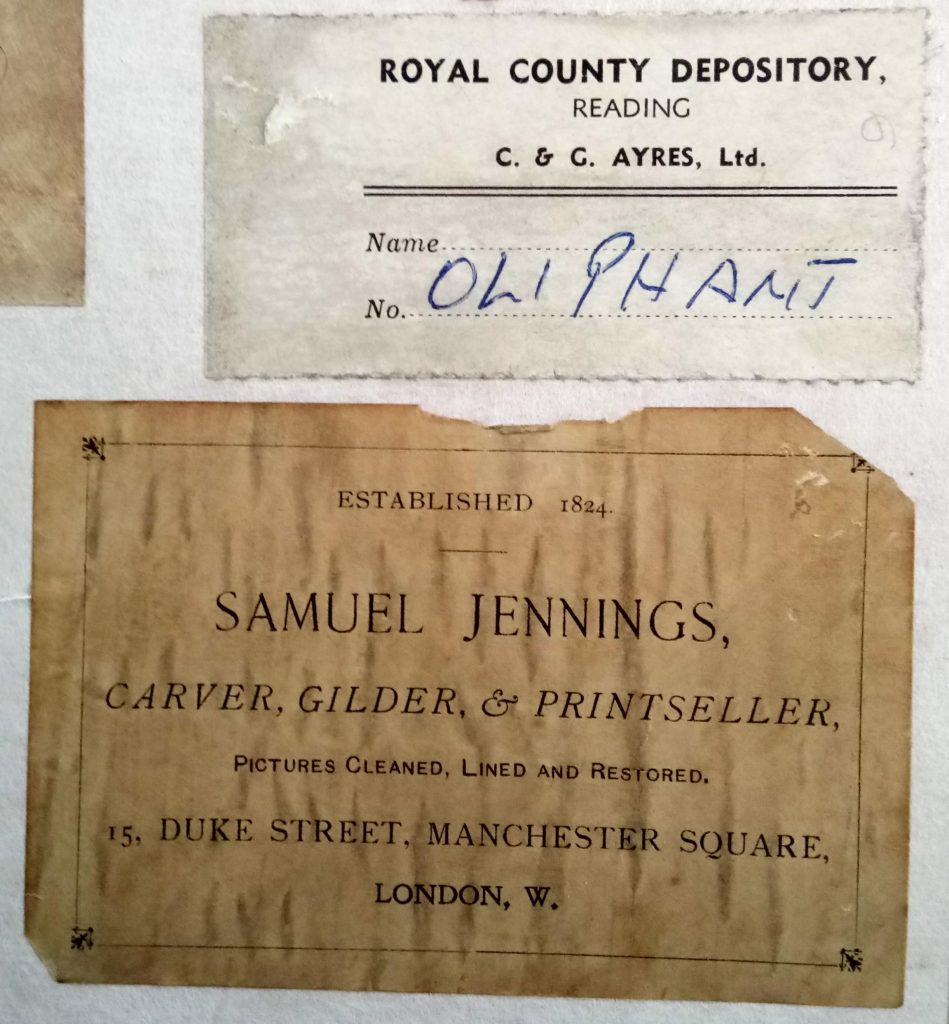 ROYAL COUNTY DEPOSITORY,
READING
C. & G. AYRES, Ltd.
Name
OLIPHANT
No.
ESTABLISHED 1824.
SAMUEL JENNINGS,
CARVER, GILDER, & PRINTSELLER,
PICTURES CLEANED, LINED AND RESTORED.
15, DUKE STREET, MANCHESTER SQUARE,
LONDON, W.